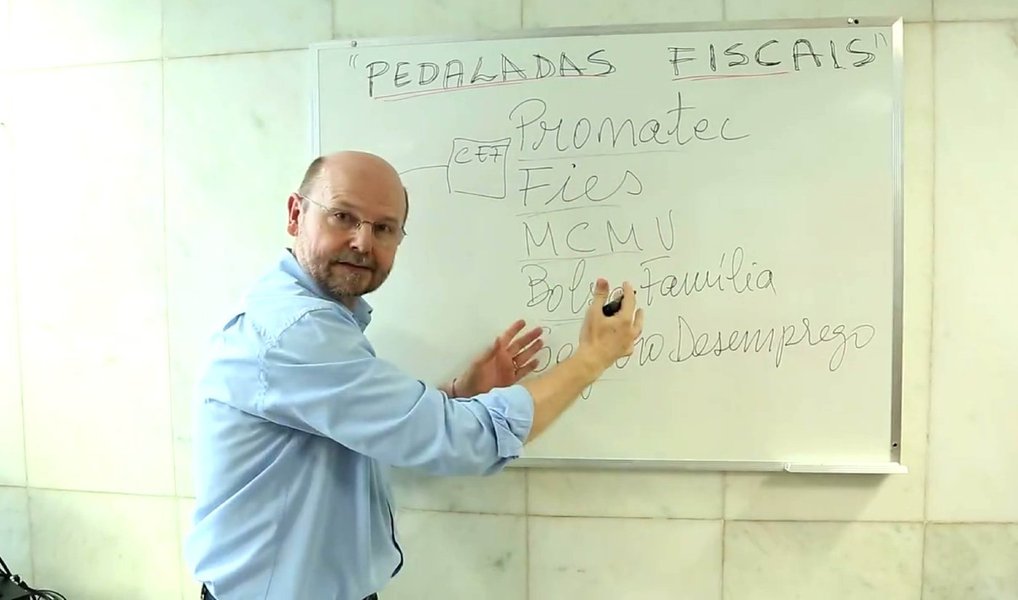 "PEDALADAS FISCAIS"
Promatec
CEF
Fies
MCMV
Bolsa Família
Desemprego